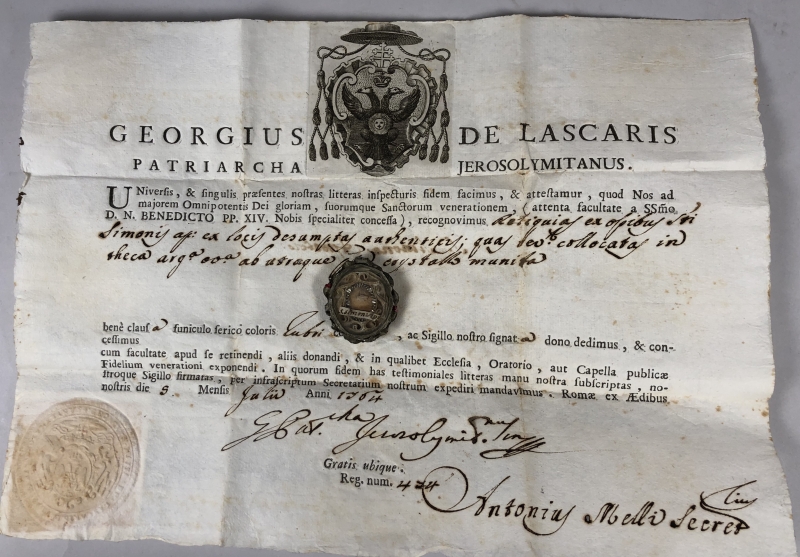 GEORGIUS DE LASCARIS
PATRIARCHA JEROSOLYMITANUS.
UNiversis, & singulis præsentes nostras litteras inspecturis fidem facimus, & attestamur, quod Nos ad
majorem Omnipotentis Dei gloriam, suorumque Sanctorum venerationem, (attenta facultate a SSmo
D. N. BENEDICTO PP. XIV. Nobis specialiter concessa), recognovimus Reliquias ex ossibus Sti
Simonis ap: ex locis desumptas authenticis; quas collocatas in
theca arg.a ov.a ab utraque crystallo munita
benè clausa funiculo serico coloris rubri, ac Sigillo nostro signata dono dedimus, & con-
cessimus
cum facultate apud se retinendi, aliis donandi, & in qualibet Ecclesia, Oratorio, aut Capella publicæ
Fidelium venerationi exponendi. In quorum fidem has testimoniales litteras manu nostra subscriptas, no-
stroque Sigillo firmatas, per infrascriptum Secretarium nostrum expediri mandavimus. Romæ ex Ædibus
nostris die 5. Mensis Julii Anni 1764
G Pat.cha Jerosolymit.nus
Gratis ubique.
Reg. num. 434
Antonius Melli Secret